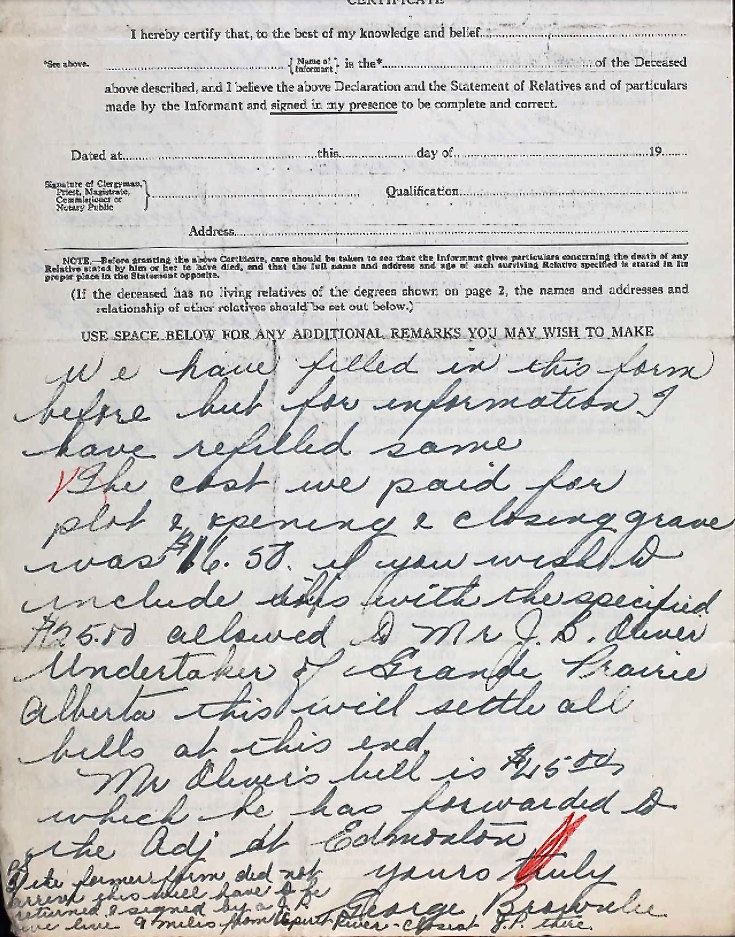 CERTIFICATE
I hereby certify that, to the best of my knowledge and belief
*See above. { Name of Informant } is the* of the Deceased
above described, and I believe the above Declaration and the Statement of Relatives and of particulars
made by the Informant and signed in my presence to be complete and correct.
Dated at this day of 19
Signature of Clergyman,
Priest, Magistrate,
Commissioner or
Notary Public
Qualification
Address
NOTE.—Before granting the above Certificate, care should be taken to see that the Informant gives particulars concerning the death of any
Relative stated by him or her to have died, and that the full name and address and age of each surviving Relative specified is stated in its
proper place in the Statement opposite.
(If the deceased has no living relatives of the degrees shown on page 2, the names and addresses and
relationship of other relatives should be set out below.)
USE SPACE BELOW FOR ANY ADDITIONAL REMARKS YOU MAY WISH TO MAKE
We have filled in this form
before but for information I
have refilled same
The cost we paid for
plot & opening & closing grave
was $16.50. if you wish to
include this with the specified
allowed to Mr J. B. Oliver
Undertaker of Grande Prairie
Alberta this will settle all
bills at this end.
Mr Oliver's bill is
which he has forwarded to
the Adj at Edmonton
yours truly
George Brownlie
If the former form did not
arrive this will have to be
returned & signed by a J.P.
we live 9 miles from Spirit River - closest J.P. there.